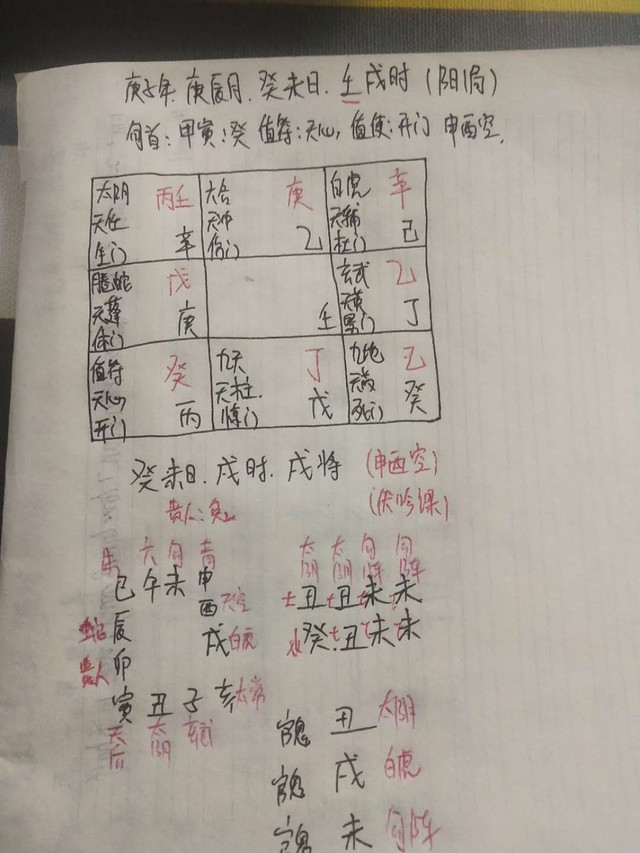 庚子年.庚辰月.癸未日.壬戌时(阳局)
旬首:甲寅:癸 值符:天心,值使:开门 申酉空.
太阴 丙壬 六合 庚 白虎 辛
天任 天冲 天辅
生门 辛 伤门 乙 杜门 己
腾蛇 戊 玄武 乙
天蓬 天英
休门 庚 壬 景门 丁
值符 癸 九天 丁 九地 己
天心 天柱.
开门 丙 惊门 戊 死门 癸
癸未日.戌时.戌将 (申酉空)
贵人: (伏吟课)
朱 六 勾 青 太阴 太阴 勾阵 勾阵
巳 午 未 申 土丑 土丑 未 未
辰 酉天空
卯 戌白虎 水癸 土丑 未 未
贵人
寅 丑 子 亥太常
天后 太阴 玄武
官鬼 丑 太阴
官鬼 戌 白虎
官鬼 未 勾阵